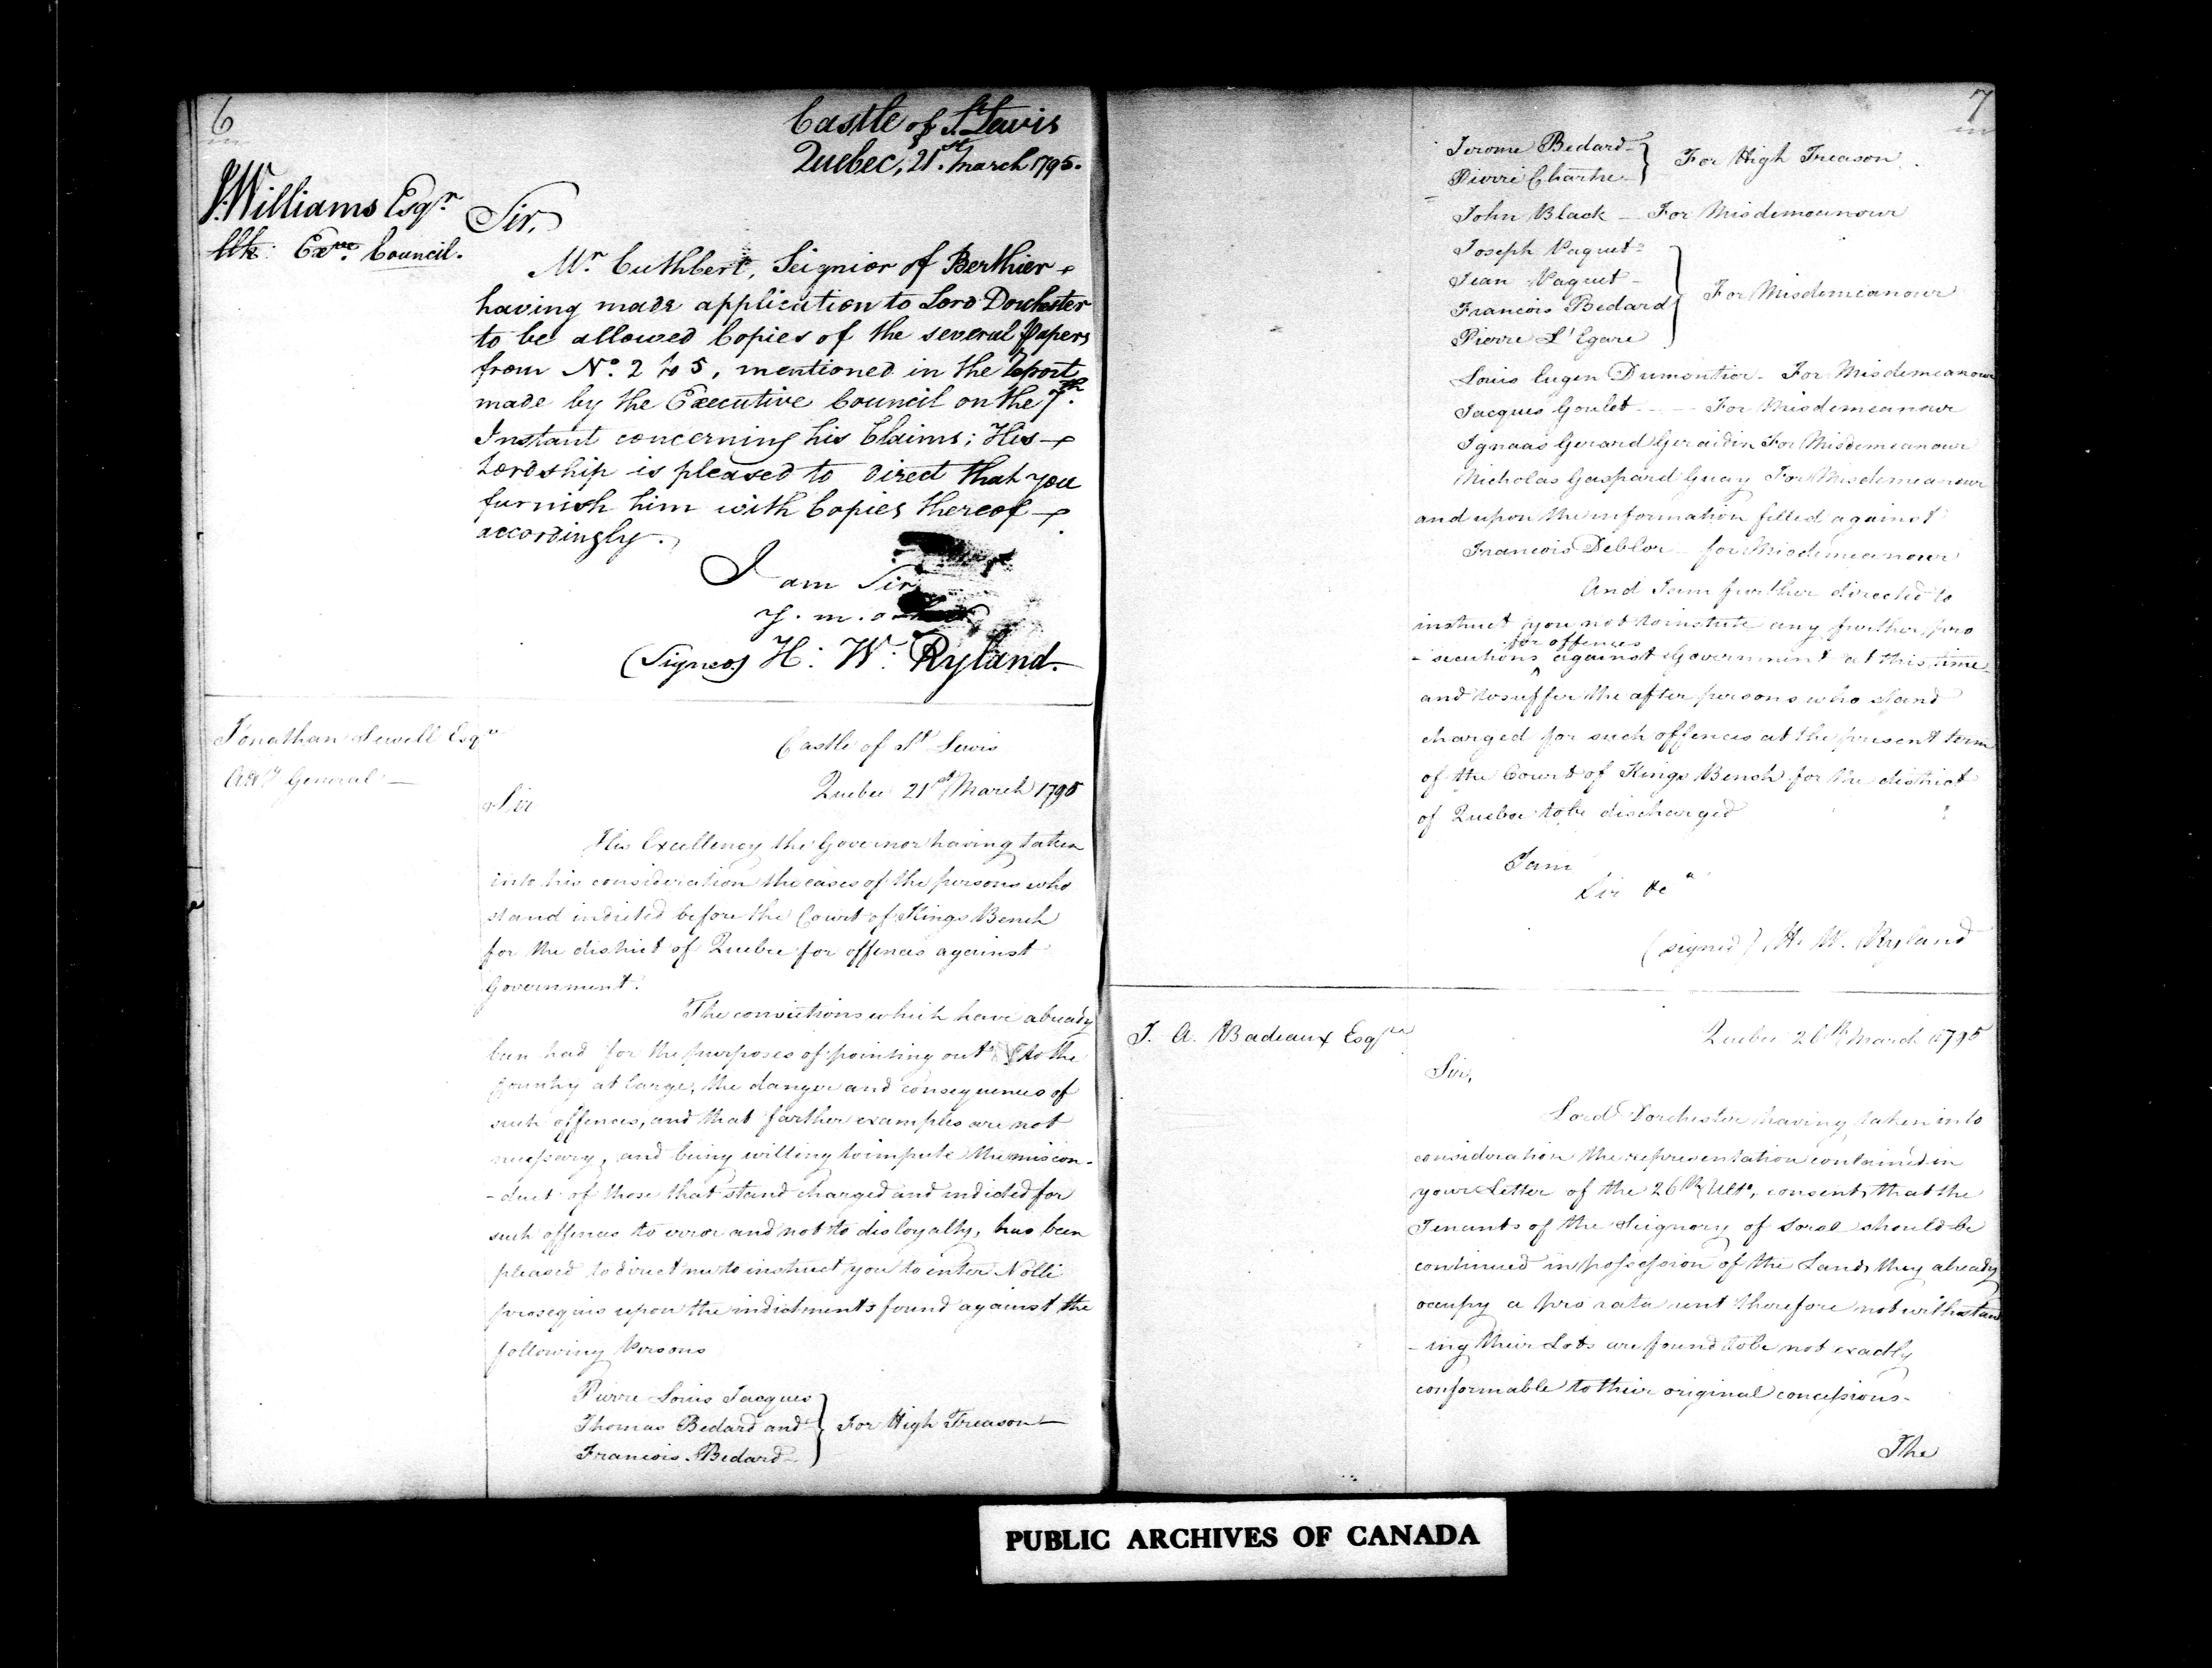 6
Castle of St. Lewis
Quebec, 21st. March 1795.
J. Williams Esqr.
Clk: Exve. Council.
Sir,
Mr. Cuthbert, Seignior of Berthier
having made application to Lord Dorchester
to be allowed Copies of the several papers
from No. 2 to 5, mentioned in the Report
made by the Executive Council on the 7th.
Instant concerning his Claims; His
Lordship is pleased to direct that you
furnish him with Copies thereof
accordingly.
I am Sir
y. m. o
(Signed) H: W: Ryland.
Jonathan Sewell Esqr
Atty General
Castle of St Lewis
Quebec 21st March 1795
Sir
His Excellency the Governor having taken
into his consideration the cases of the persons who
stand indicted before the Court of Kings Bench
for the district of Quebec for offences against
Government.
The convictions which have already
been had for the purposes of pointing out to the
Country at large, the danger and consequences of
such offences, and that farther examples are not
necessary, and being willing to impute the miscon-
-duct of those that stand charged and indicted for
such offences to error and not to disloyalty, has been
pleased to direct me to instruct you to enter Nolli
prosequis upon the indictments found against the
following Persons
Pierre Louis Jacques
Thomas Bedard and
Francois Bedard
For High Treason
7
Jerome Bedard
Pierre Chartre
For High Treason
John Black - For Misdemeanour
Joseph Paquet
Jean Paquet
Francois Bedard
Pierre L'Egare
For Misdemeanour
Louis Eugen Dumontier - For Misdemeanour
Jacques Goulet - - - For Misdemeanour
Ignaas Gerard Geraidin For Misdemeanour
Nicholas Gaspard Guay For Misdemeanour
and upon the information filled against
Francois Deblor for Misdemeanour
And I am further directed to
instruct you not to institute any further pro
for offences
-secutions against Government at this time
and to suffer the after persons who stand
charged for such offences at the present term
of the Court of Kings Bench for the district
of Quebec to be discharged
I am
Sir &c a
(signed) H. W. Ryland
J. A. Badeaux Esqre
Quebec 26th March 1795
Sir,
Lord Dorchester having taken into
consideration the representation contained in
your Letter of the 26th Ulto, consents that the
Tenants of the Seignory of Sorel should be
continued in possession of the Lands they already
occupy a pro rata rent therefore notwithstand
-ing their Lots are found to be not exactly
conformable to their original concessions-
The
PUBLIC ARCHIVES OF CANADA